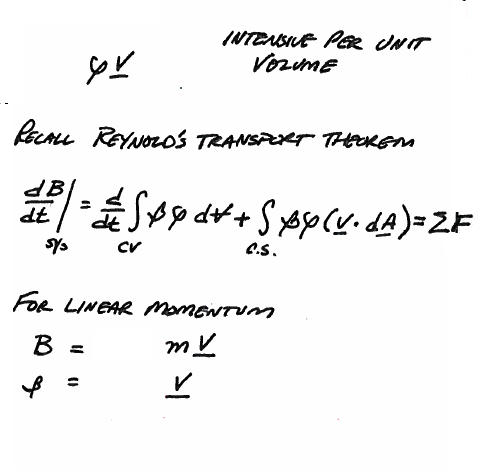 INTENSIVE PER UNIT
φV̲ VOLUME
RECALL REYNOLD'S TRANSPORT THEOREM
dB/dt|sys = d/dt ∫CV βφ dV̶ + ∫C.S. βφ(V̲·dA̲) = ΣF
FOR LINEAR MOMENTUM
B = mV̲
β = V̲